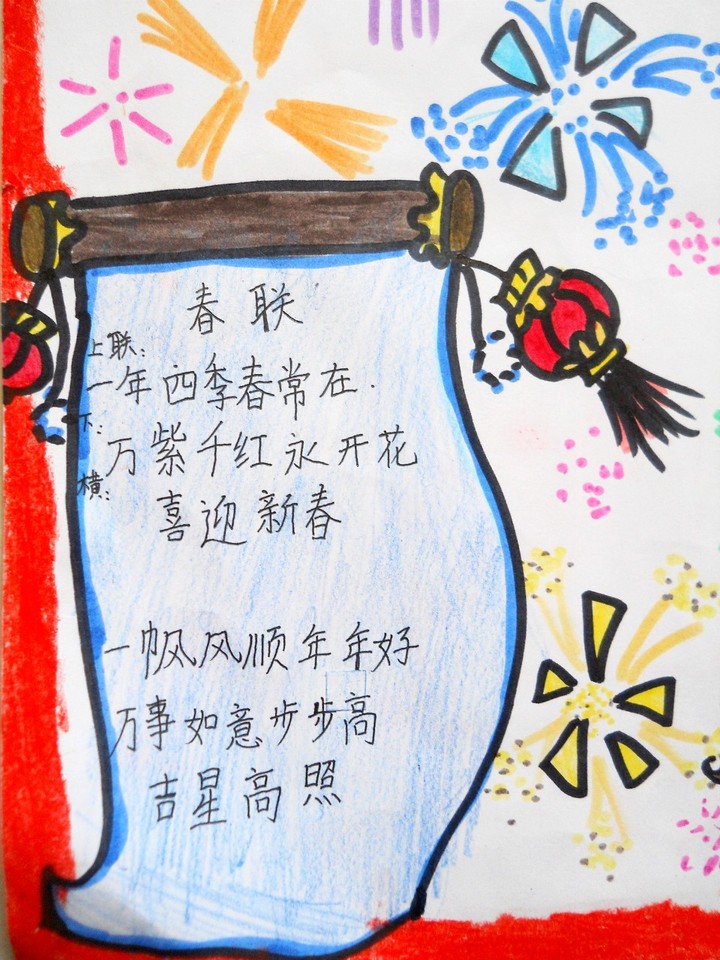 春联
上联:
一年四季春常在.
下:
万紫千红永开花
横:
喜迎新春
一帆风顺年年好
万事如意步步高
吉星高照